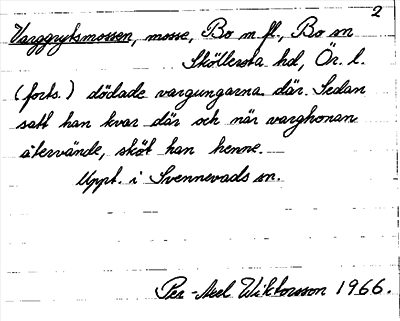 2
Varggrytsmossen, mosse, Bo m fl, Bo sn
Sköllersta hd, Ör. l.
(forts.) dödade vargungarna där. Sedan
satt han kvar där och när varghonan
återvände, sköt han henne.
Uppt. i Svennevads sn.
Per-Axel Wiktorsson 1966.